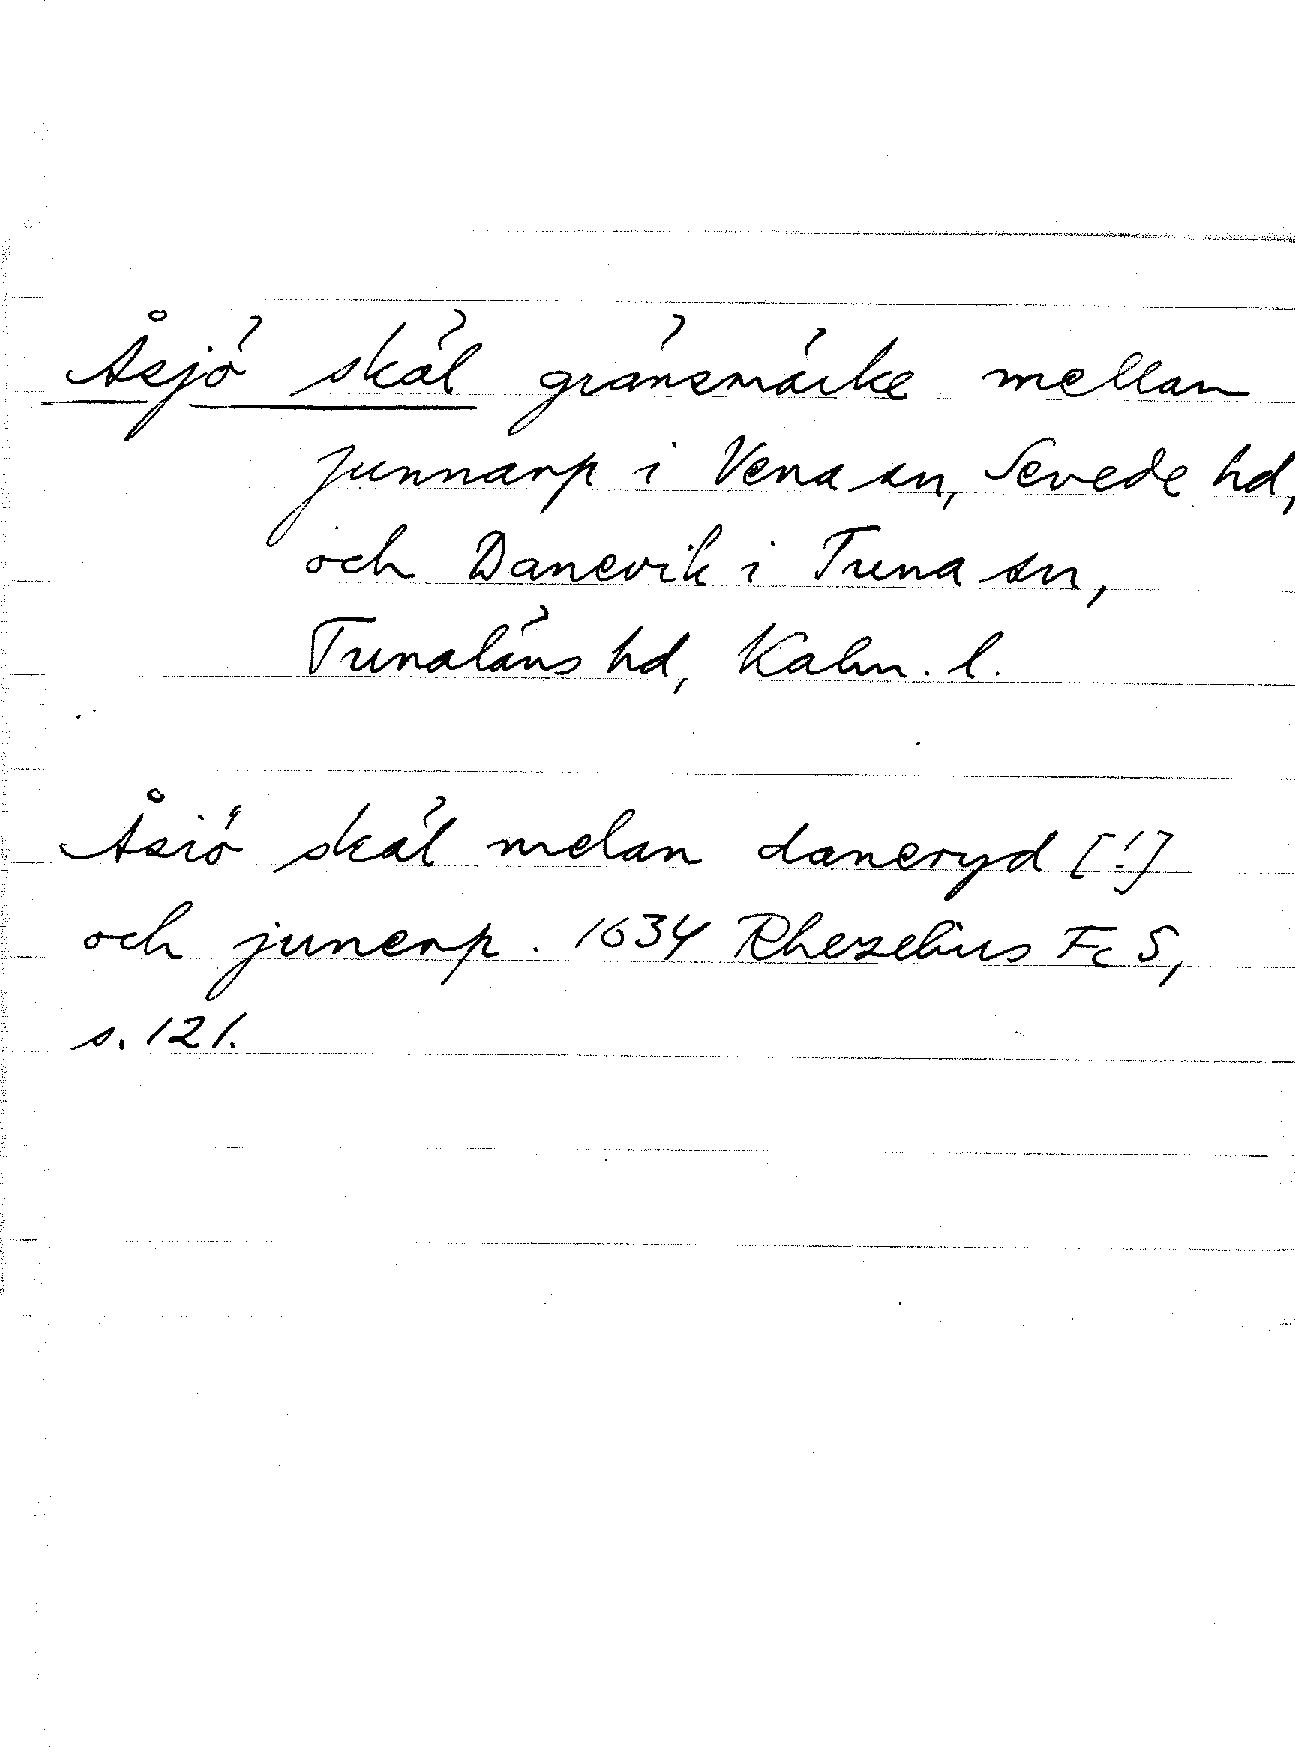 Åsjö skäl gränsmärke mellan
Junnarp i Vena sn, Sevede hd,
och Danevik i Tuna sn,
Tunaläns hd, Kalm. l.
Åsiö skäl melan daneryd [!]
och junerp. 1634 Rhezelius Fc 5,
s. 121.